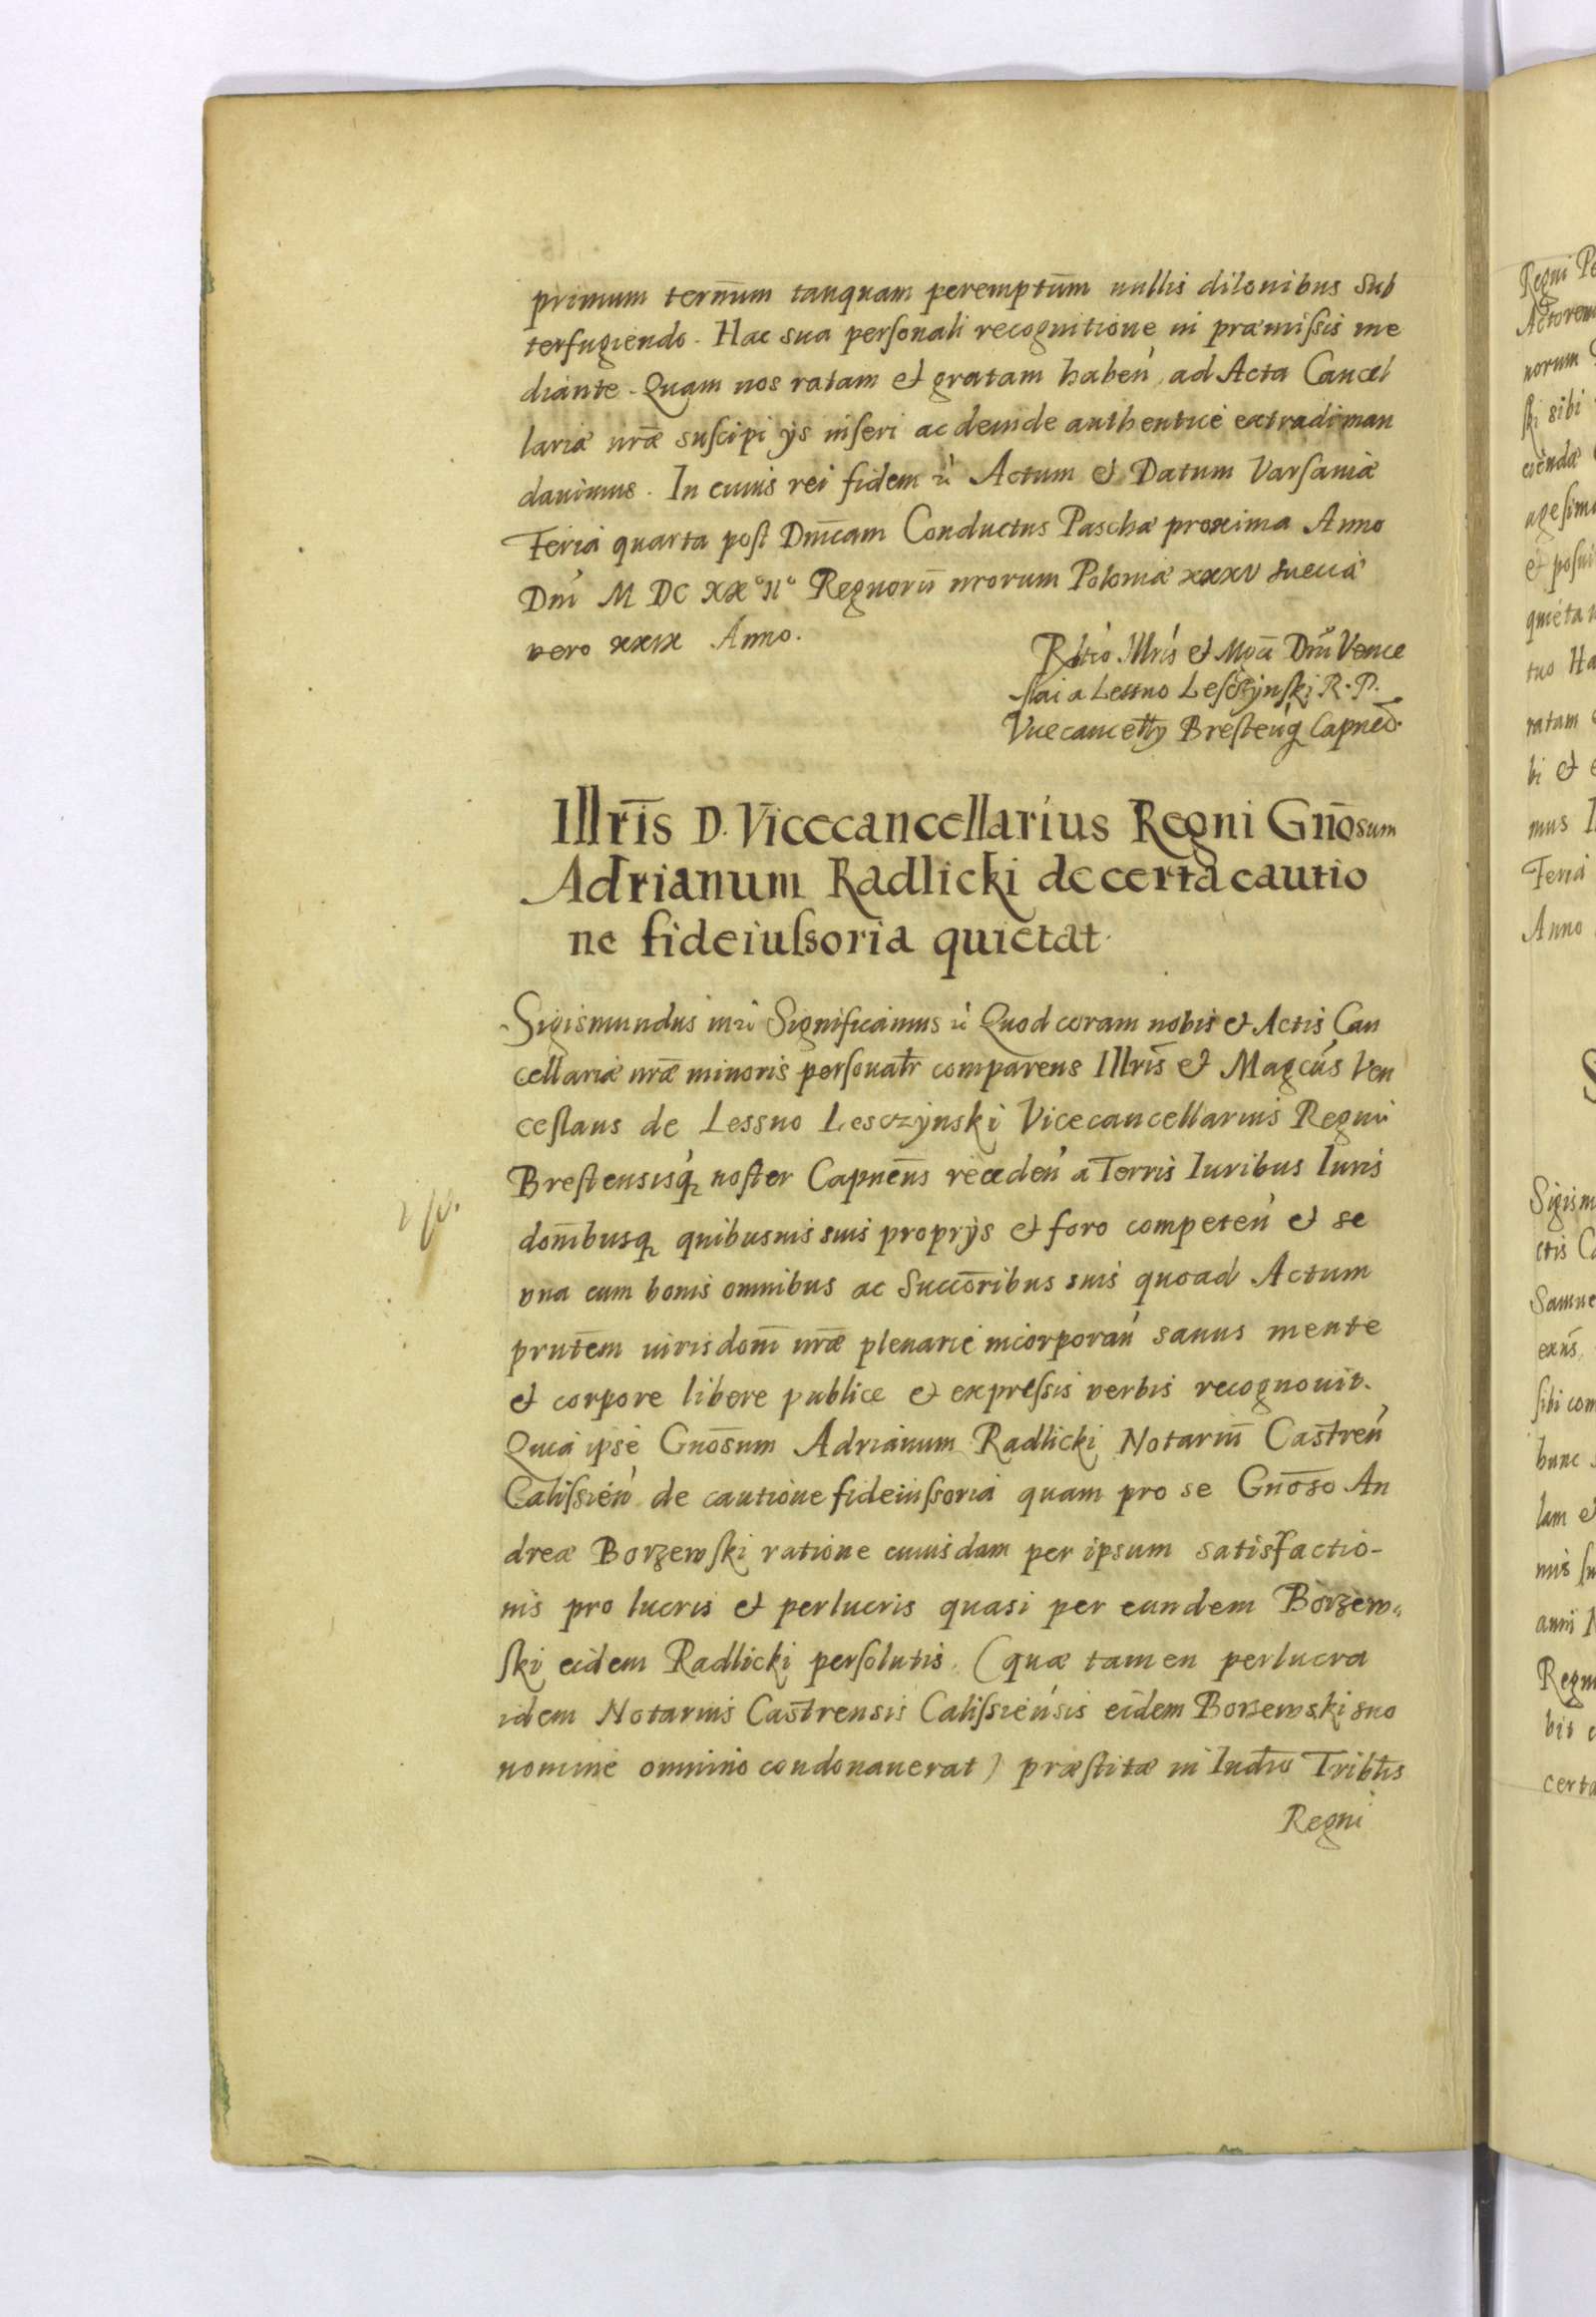 primum term̄um tanquam peremptūm nullis dilonibus sub
terfugiendo. Hac sua personali recognitione in præmissis me
diante. Quam nos ratam et gratam habeń ad Acta Cancel
lariæ nrǣ suscipi ijs inseri ac deinde authentice extradi man
dauimus. In cuius rei fidem ╬ Actum et Datum Varsauiæ
Feria quarta post Dnīcam Conductus Paschæ proxima Anno
Dnī M DC XXº IIº Regnorū nrorum Poloniæ xxxv Sueciæ
vero xxix Anno.
Rltio Illris et Mgci Dni Vence
slai a Lessno Lesczynski R. P.
Vicecancellrij Brestenq̨ Capnei
Illrīs D. Vicecancellarius Regni Gnōsum
Adrianum Radlicki de certa cautio
ne fideiussoria quietat.
Sigismundus Significamus Quod coram nobis et Actis Can
cellariæ nrǣ minoris personalr̄ comparens Illris̄ et Magcus Ven
ceslaus de Lessno Lesczynski Vicecancellarius Regni
Brestensisq̨ noster Capneus̄ recedeń a Terris Iuribus Iuris
donībusq̨ quibusuis suis proprijs et foro competeń et se
vna cum bonis omnibus ac Succōribus suis quoad Actum
prntēm iurisdoni nrǣ plenarie incorporań sanus mente
et corpore libere publice et expressis verbis recognouit.
Quia ipse Gnōsum Adrianum Radlicki Notariū Castreń
Calissień de cautione fideiussoria quam pro se Gnōso An
dreæ Borzewski ratione cuiusdam per ipsum satisfactio-
nis pro lucris et perlucris quasi per eundem Borzew-
ski eidem Radlicki persolutis (quæ tamen perlucra
idem Notarius Castrensis Calissieńsis eidem Borzewski suo
nomine omnino condonauerat) præstitæ in Iudio Tribl̄is
Regni